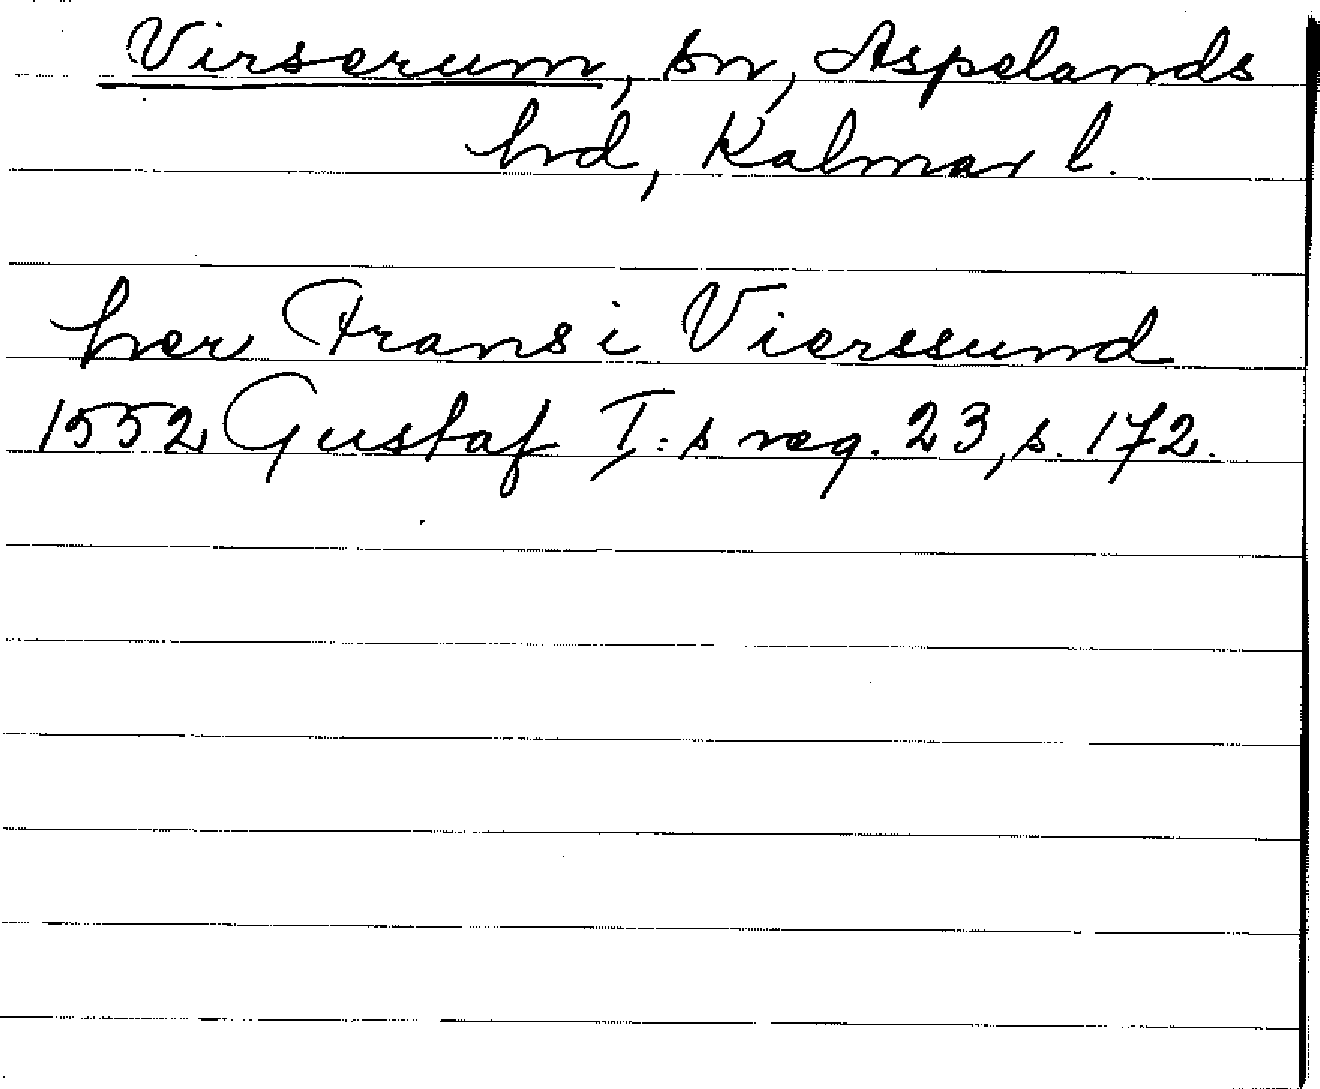 Virserum, sn, Aspelands
hd, Kalmar l.
her Frans i Vierssund
1552 Gustaf I:s reg. 23, s. 172.